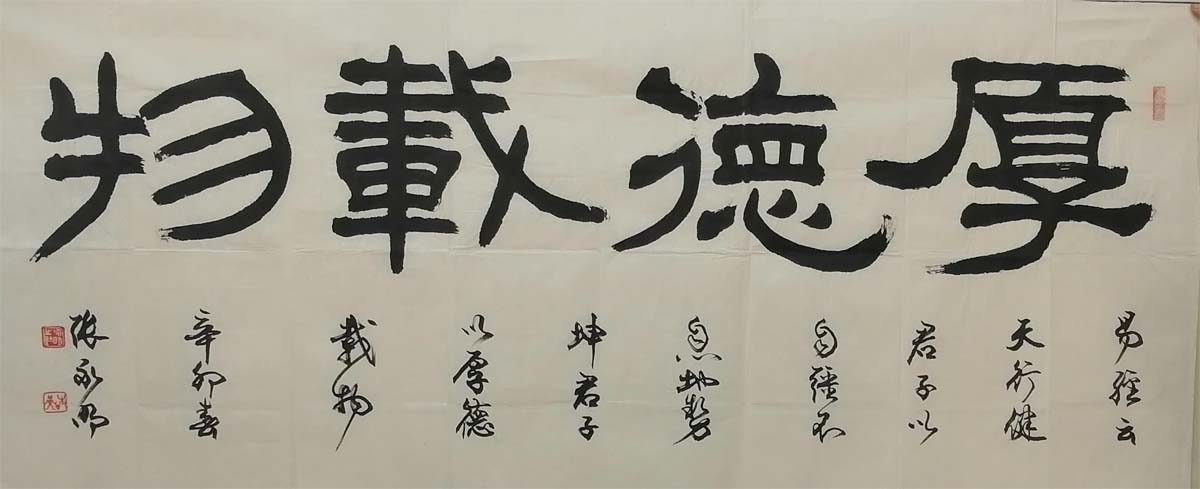 厚德載物
易經云
天行健
君子以
自強不
息地勢
坤君子
以厚德
載物
辛卯春
張永明